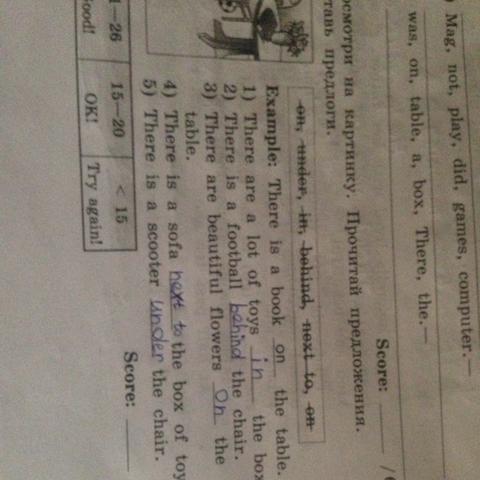 ) Mag, not, play, did, games, computer.—
was, on, table, a, box, There, the.—
Score: /
осмотри на картинку. Прочитай предложения.
тавь предлоги.
on, under, in, behind, next to, on
Example: There is a book on the table.
1) There are a lot of toys in the box
2) There is a football behind the chair.
3) There are beautiful flowers On the
table.
4) There is a sofa next to the box of toy
5) There is a scooter under the chair.
Score:
1—26 15—20 < 15
ood! OK! Try again!